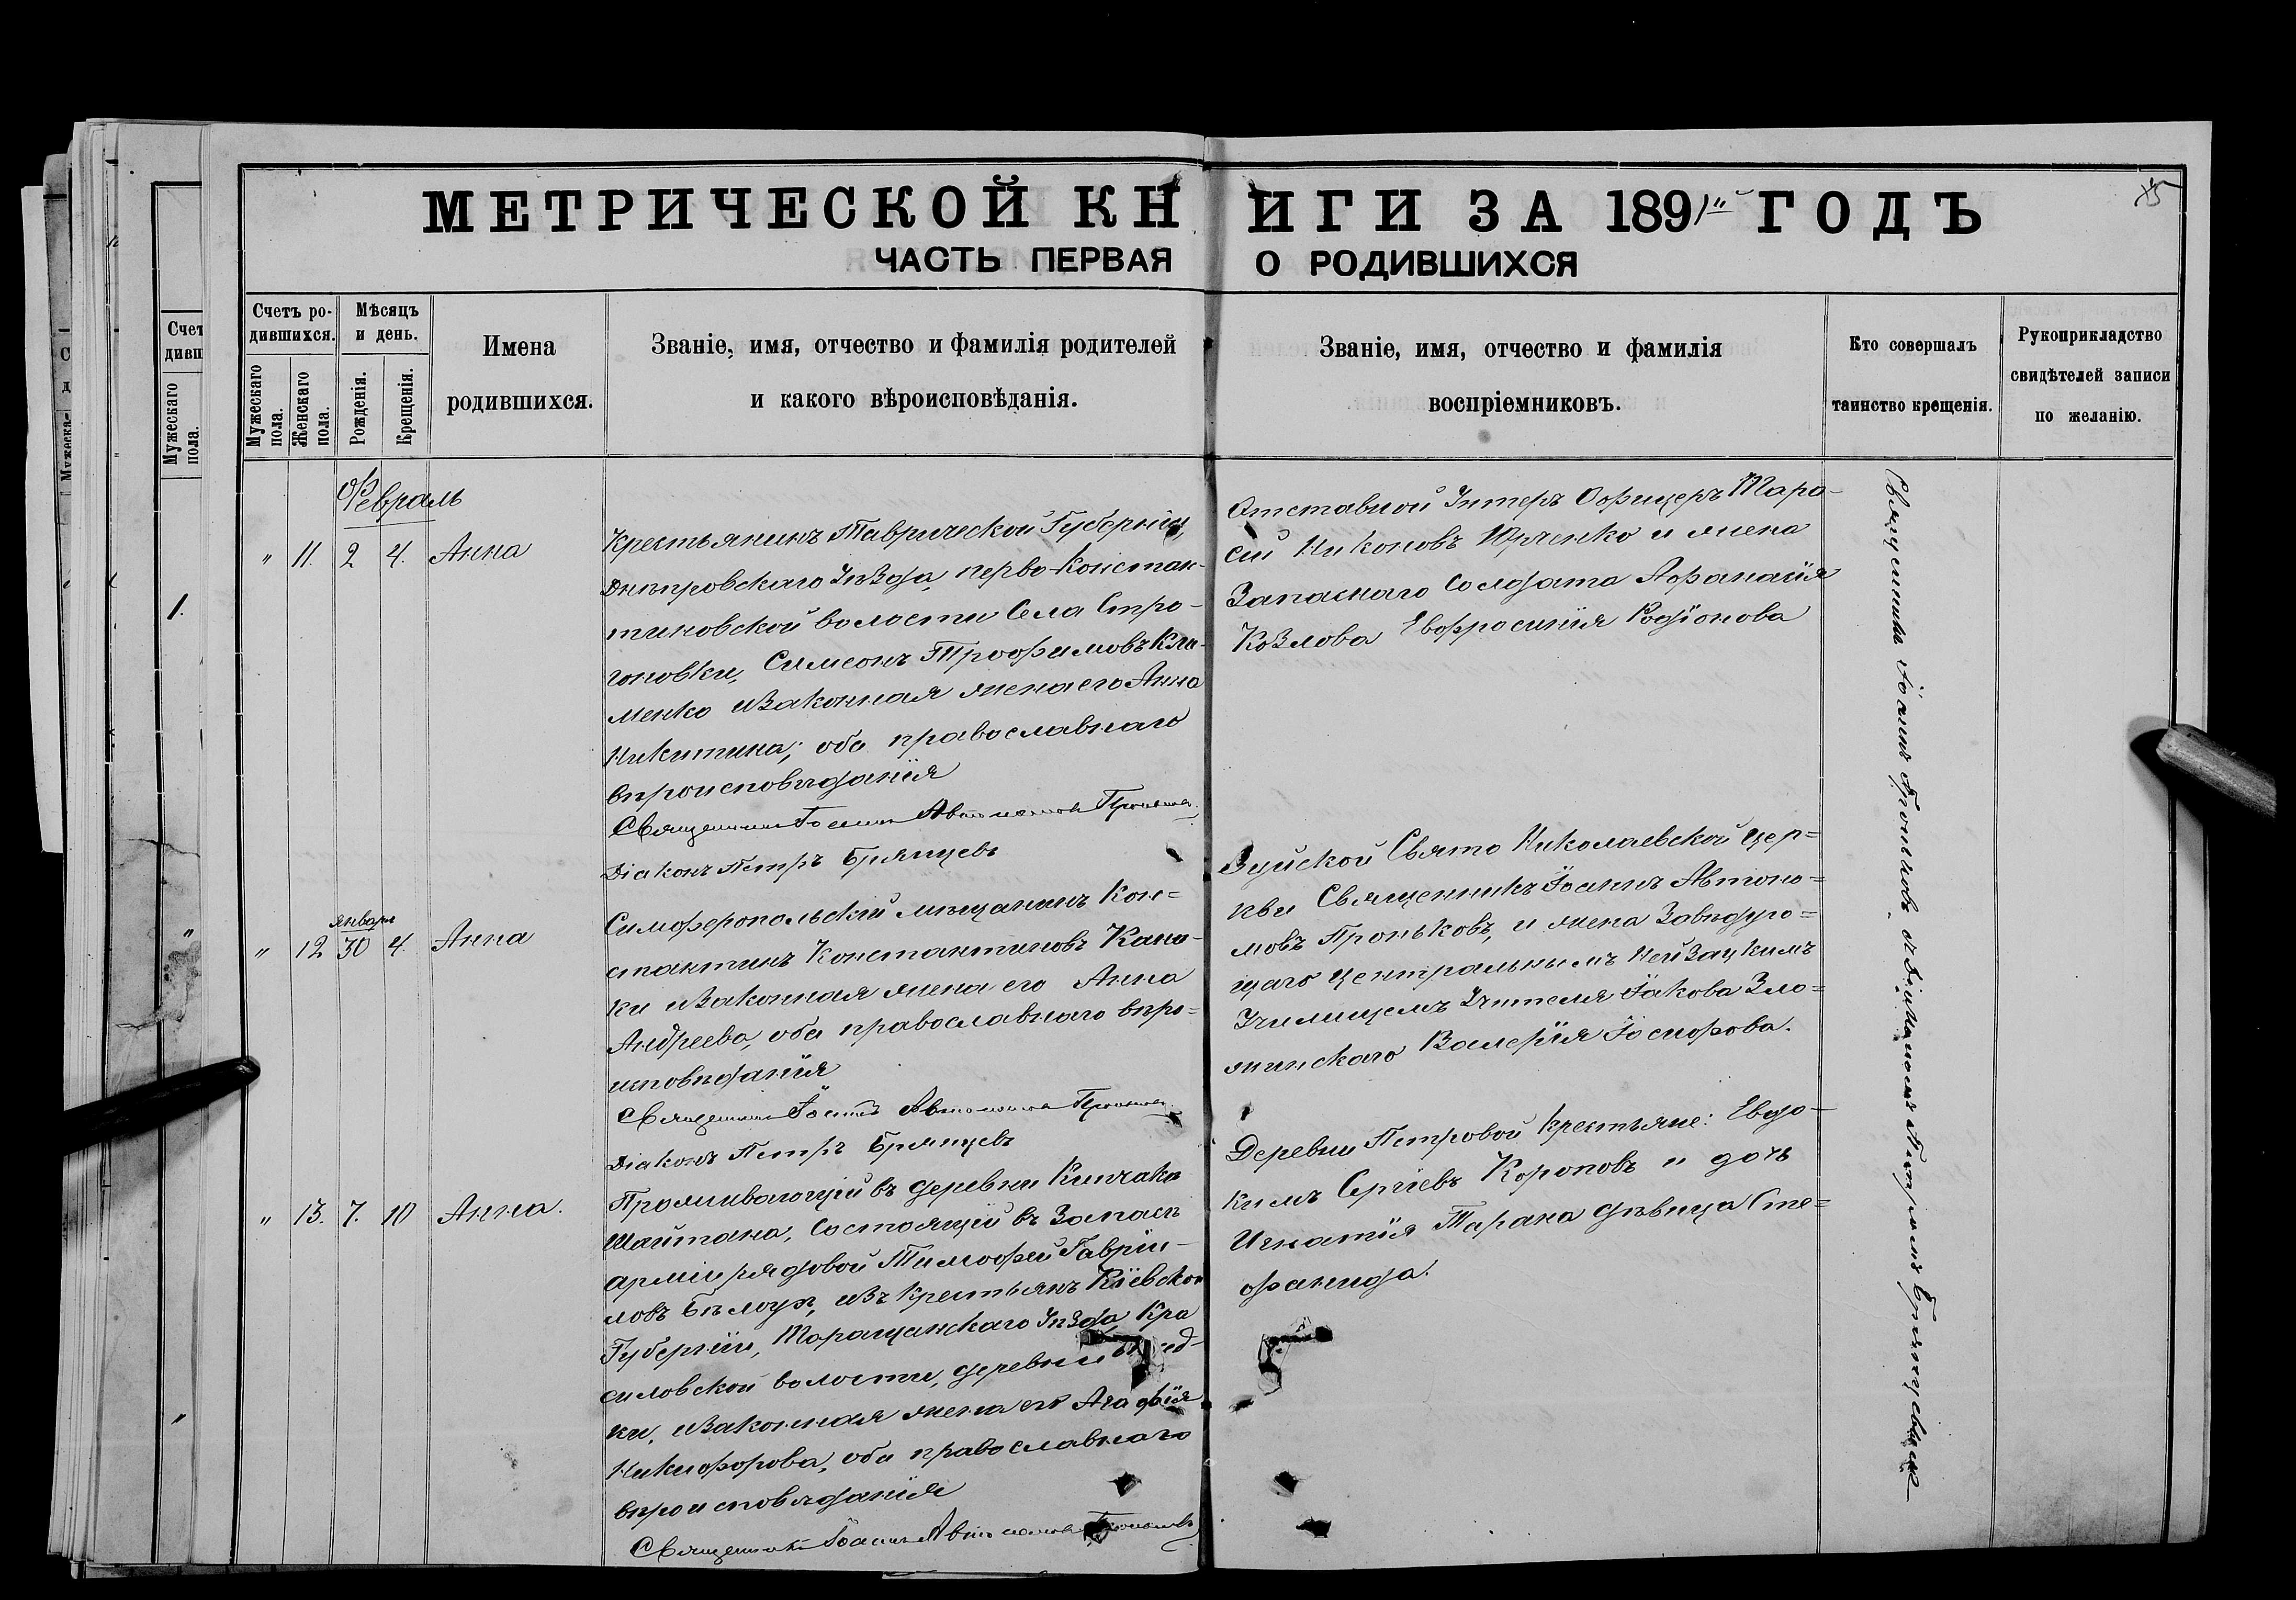 МЕТРИЧЕСКОЙ КНИГИ ЗА 1891й ГОДЪ
ЧАСТЬ ПЕРВАЯ О РОДИВШИХСЯ
Счетъ ро-
дившихся.
Мужескаго пола.
Женскаго пола.
Мѣсяцъ
и день.
Рожденія.
Крещенія.
Имена
родившихся.
Званіе, имя, отчество и фамилія родителей
и какого вѣроисповѣданія.
Званіе, имя, отчество и фамилія
воспріемниковъ.
Кто совершалъ
таинство крещенія.
Рукоприкладство
свидѣтелей записи
по желанію.
Февраль
" 11. 2 4. Анна
Крестьянинъ Таврической Губерніи,
Днѣпровскаго Уѣзда, перво-Констан-
тиновской волости Села Стро-
гоновки, Симеонъ Трофимовъ Кли-
менко и законная жена его Анна
Никитина; оба православнаго
вѣроисповѣданія
Священникъ Іоаннъ Автономовъ Проньковъ
Діаконъ Петръ Брянцевъ
Отставной Унтеръ Офицеръ Тара-
сій Никоновъ Юрченко и жена
Запаснаго Солдата Афанасія
Козлова Евфросинія Родіонова
январь
" 12 30 4. Анна
Симферопольскій мѣщанинъ Кон=
стантинъ Константиновъ Кана-
ки и законная жена его Анна
Андреева, оба православнаго вѣро=
исповѣданія
Священникъ Іоаннъ Автономовъ Проньковъ
Діаконъ Петръ Брянцевъ
Зуйской Свято Николаевской цер=
кви Священникъ Іоаннъ Автоно=
мовъ Проньковъ, и жена Завѣдую=
щаго Центральнымъ Нейзацкимъ
Училищемъ Учителя Іакова Зло=
минскаго Валерія Іосифова.
" 13. 7. 10 Анна.
Проживающій въ деревни Кипчакъ
Шайтана, Состоящій въ Запасѣ
арміи рядовой Тимофей Гавріи-
ловъ Бѣлоуз, изъ крестьянъ Кіевской
Губерніи, Таращанскаго Уѣзда Кра
силовской волости, деревни
ки, и законная жена его Агафія
Никифорова, оба православнаго
вѣроисповѣданія
Священникъ Іоаннъ Автономовъ Проньковъ
Деревни Петровой крестьяне: Евдо-
кимъ Сергіевъ Короповъ и дочь
Игнатія Тарана дѣвица Сте=
фанида.
Священникъ Іоаннъ Проньковъ съ Діакономъ Петромъ Брянцевымъ
Счет
дивш
Мужескаго пола.
1.